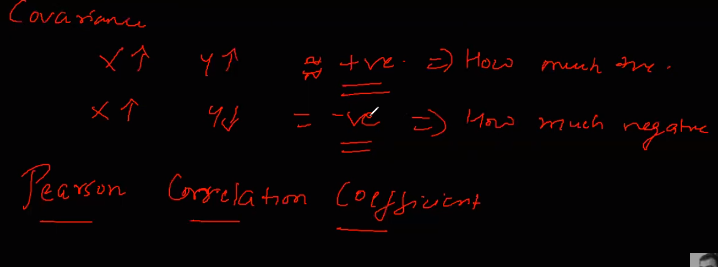 Covariance
X↑ Y↑ ≈ +ve. => How much +ve.
X↑ Y↓ = -ve => How much negative
Pearson Correlation Coefficient